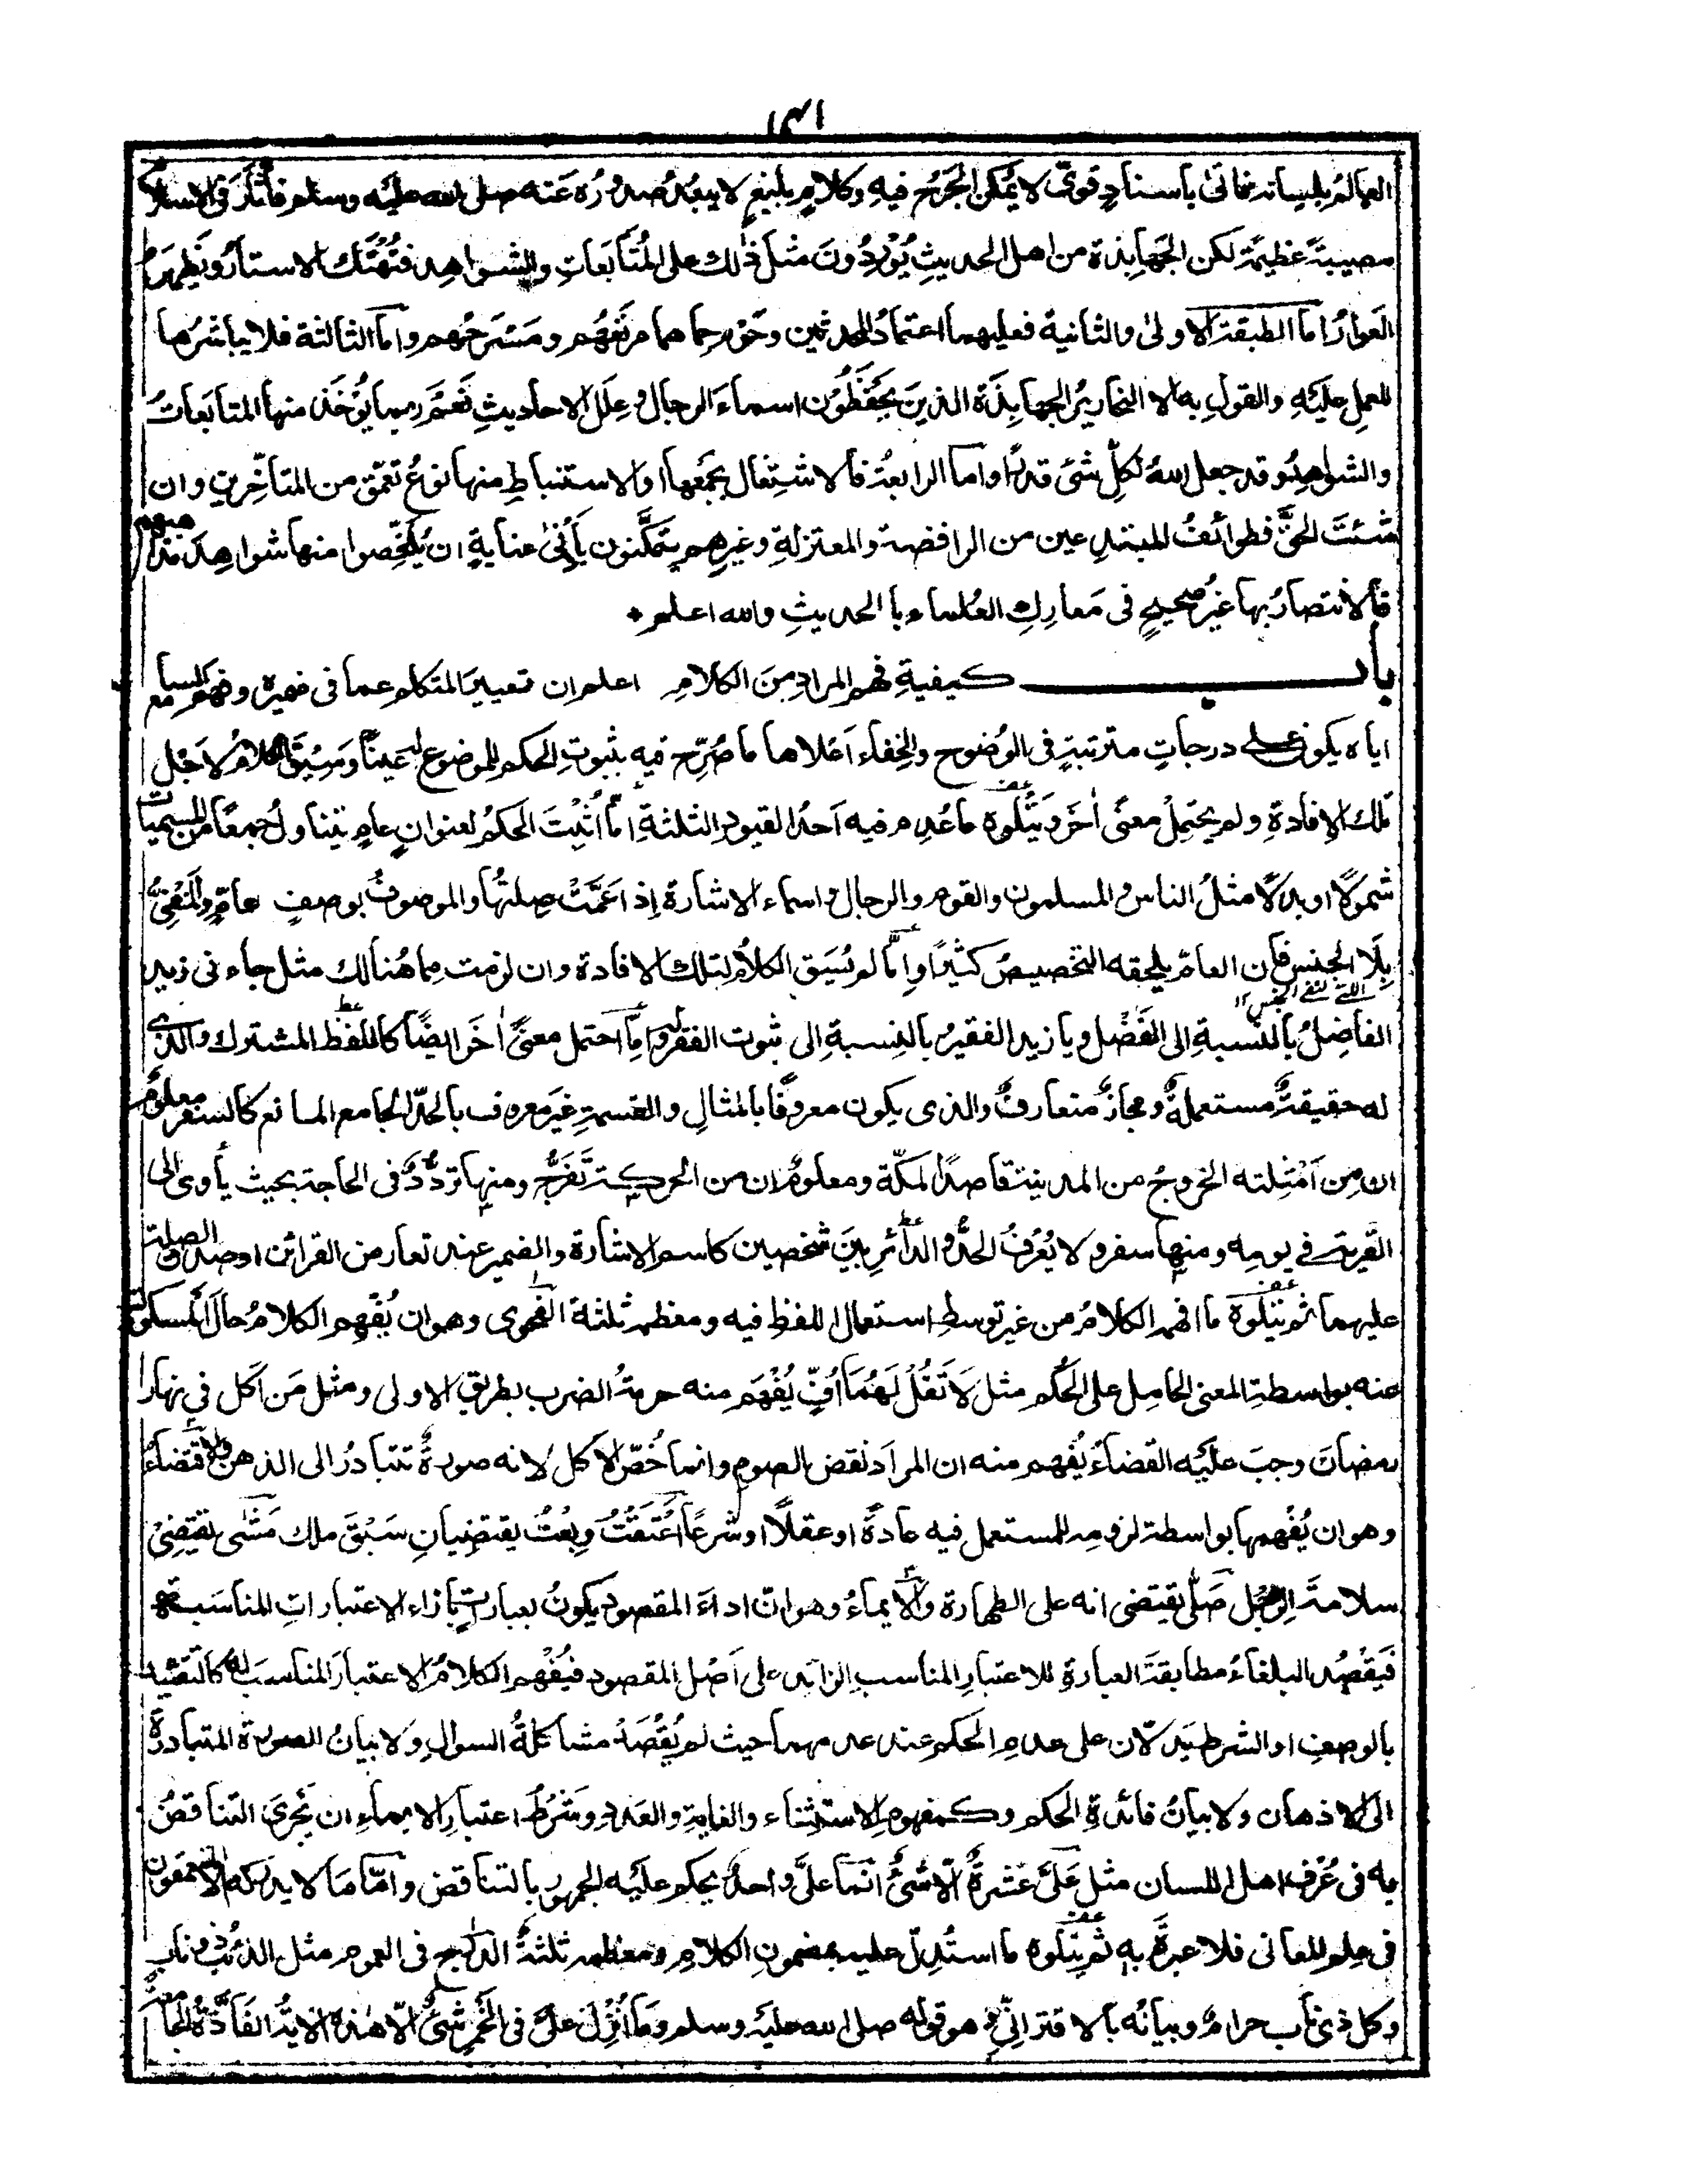 ١٣١
العالم بلسانه فاتى باسنادٍ قوىٍّ لا يُمكن الجَرحُ فيه وكلامٍ بليغٍ لا يبعُد صدورُه عَنه صلى الله عليه وسلم فاثار فى الاسلام
مصيبةً عظيمةً لكن الجَهابذة من اهل الحديثِ يُوردُونَ مثل ذٰلك على المُتَابَعاتِ والشواهِد فتُهْتَك الاستارُ ويَظهرُ
العَوارُ اما الطبقة الاولىٰ والثانية فعليهما اعتمادُ المحدثين وحَوْم حِماهما مرتَعُهم ومَسْرَحُهم واما الثالثة فلا يباشرُها
للعملِ عليَه والقولِ به الا النحاريرُ الجهابِذَة الذينَ يحفَظُوْن اسماءَ الرجال وعِلَل الاحاديثِ نَعَم ربما يُؤخَذ منها المتابَعاتُ
والشواهِدُ وقد جعل اللهُ لكلِّ شئ قدرًا واما الرابعةُ فالاشتِغال بجَمْعِها او الاستنباطِ منها نوعُ تعمّقٍ من المتاخِّرين وان
شئتَ الحقَّ فطوائفُ المبتدِعين من الرافضة والمعتزلةِ وغيرِهم يتمكَّنون بأدْنىٰ عنايةٍ ان يُلَخِّصوا منها شواهِدَ مذاهبهم
فالانتصارُ بها غيرُ صحيحٍ فى مَعارِكِ العُلماء بالحديثِ والله اعلم ٭
باب كيفيةِ فهم المرادِ مِنَ الكلامِ اعلم ان تعبيرَ المتكلم عما فى ضميره وفهمَ السامع
اياه يكون على درجاتٍ مترتبةٍ فى الوُضوح والخِفاء اَعْلاها ما صُرِّح فيه بثبوتِ الحكم للموضوع له عينًا وسِيْقَ الكلامُ لاَجْل
تلك الافادةِ ولم يحتمِلْ معنًى اٰخَرَ ويَتْلُوه ما عُدِم فيه اَحدُ القيودِ الثلثةِ امّا اُثْبِتَ الحكمُ لعنوانٍ عامٍ يتناولُ جمعًا من المسمياتِ
شمولًا او بدلًا مثلُ الناس والمسلمون والقوم والرجال واسماء الاشارة اِذا عَمَّتْ صِلتُها والموصوفُ بوصفٍ عامٍّ والمنفىُّ
بِلَا الجنس فان العامّ يلحقه التخصيصُ كثيرًا واِمّا لم يُسَق الكلامُ لتلك الافادة وان لزمت مِما هُنالك مثل جاءنى زيد
اللتي لنفي الجنس ١٢
الفاضِلُ بالنسبةِ الى الفَضْل ويا زيد الفقيرُ بالنِسبةِ الى ثبوت الفقر له واِمَّا احتمل معنًى اٰخَر ايضًا كاللفظ المشترك والذى
له حقيقةٌ مستعملةٌ ومجازٌ متعارفٌ والذى يكون معروفًا بالمثالِ والقسمةِ غيَر معروف بالحدّ الجامع المانع كالسفر معلومٌ
ان مِن اَمْثِلته الخروجُ من المدينة قاصدًا لمكّة ومعلومٌ ان من الحركة تَفَرُّجٌ ومنها تردُّدٌ فى الحاجة بحيث يأوى الى
القرية فى يومِه ومنها سفرٌ ولا يُعْرفُ الحدُّ والدائرِ بينَ شخصين كاسم الاشارة والضمير عند تعارض القرائن او صدق الصلة
عليهما ثم يتلوه ما افهمه الكلامُ من غير توسطِ استعمال اللفظ فيه ومعظمه ثلثة الفحوى وهو ان يُفْهِم الكلامُ حالَ المسكوت
عنه بواسطةِ المعنى الحامِل على الحُكم مثل لَا تَقُلْ لَهُمَا اُفٍّ يُفْهَم منه حرمةُ الضرب بطريق الاولى ومثل مَن اَكَل فى نهار
رمضان وجبَ عليَه القضاءُ يُفهم منه ان المرادَ نقض الصوم وانما خُصّ الاكل لانه صورةٌ تتبادرُ الى الذهن والاقتضاءُ
وهو ان يُفْهِمها بواسطة لزومِه للمستعمل فيه عادةً او عقلًا او شرعًا اَعْتَقْتُ وبِعْتُ يقتضِيانِ سَبْقَ ملك مَشٰى يقتضِىْ
سلامةَ الرِجْل صَلّٰى يقتضى انه على الطهارة والايماءُ وهو ان اداءَ المقصود يكونُ بعباراتٍ بازاء الاعتباراتِ المناسَبة
فيَقْصُد البلغاءُ مطابقةَ العبارةِ للاعتبارِ المناسب الزائد على اَصْل المقصود فيُفْهِم الكلامُ الاعتبارَ المناسبَ له كالتقييد
بالوصفِ او الشرط يَدلّان على عدمِ الحكم عند عدمهما حيث لم يُقْصَدْ مشاكلةُ السوالِ ولا بيانُ الصورة المتبادرةِ
الى الاذهان ولا بيانُ فائدةِ الحكم وكمفهومِ الاستثناء والغايةِ والعَددِ وشرطُ اعتبارِ الايماءِ ان يَجْرىَ التناقضُ
به فى عُرْف اهل اللسان مثل عَلَىَّ عَشرةٌ الّا شئٌ انّما علىَّ واحدٌ يحكم عليَه الجمهورُ بالتناقض وامّا مَا لا يدركه الا المتعمقون
فى علم المعانى فلا عبرةَ به ثم يتلوه ما استُدِلَّ عليه بمضمونِ الكلامِ ومعظمه ثلثةٌ الدرج فى العموم مثل الذئبُ ذو ناب
وكل ذى ناب حرامٌ وبيانُه بالاقترانىِّ وهو قوله صلى الله عليَه وسلم وَما اُنْزِلَ علىَّ فى الحُمُرِ شىْءٌ الّا هٰذه الاٰيةُ الفَاذَّةُ الجامعة